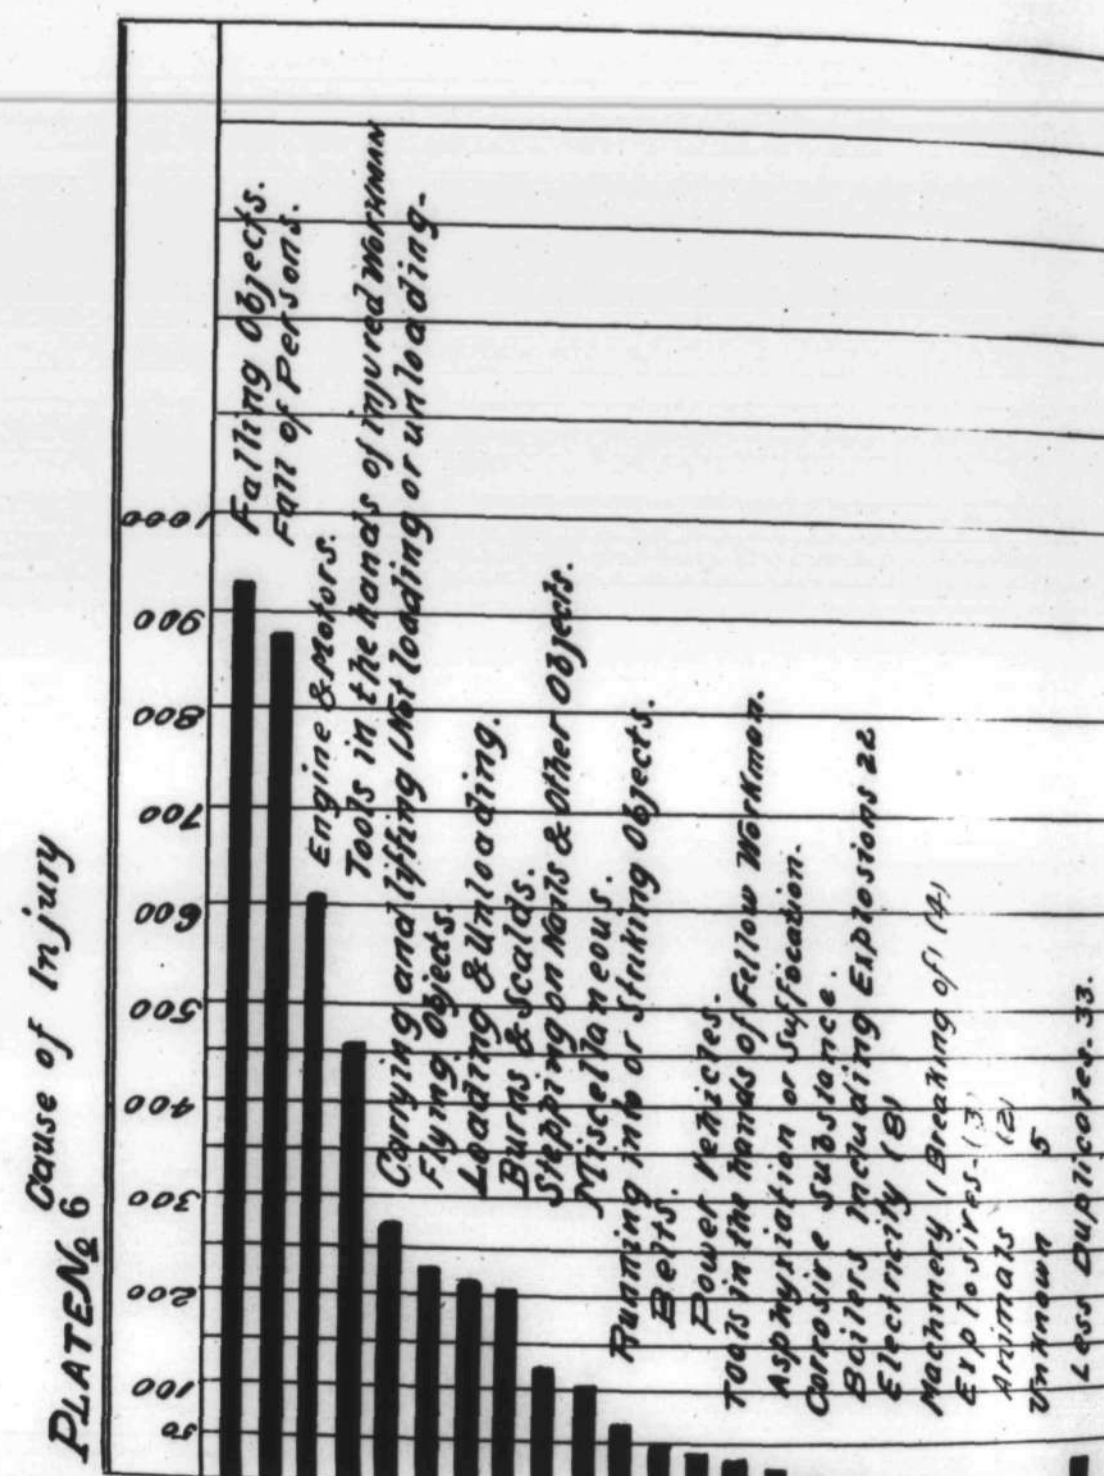 PLATE No 6
Cause of Injury
50
100
200
300
400
500
600
700
800
900
1000
Falling Objects.
Fall of Persons.
Engine & Motors.
Tools in the hands of injured WORKMAN
Carrying and lifting (Not loading or unloading-
Flying Objects.
Loading & Unloading.
Burns & Scalds.
Stepping on Nails & Other Objects.
Miscellaneous.
Running into or Striking Objects.
Belts.
Power Vehicles.
Tools in the hands of Fellow Workman.
Asphyxiation or Suffocation.
Corrosive Substance.
Boilers Including Explosions 22
Electricity (8)
Machinery (Breaking of) (4)
Explosives-(3)
Animals (2)
Unknown 5
Less Duplicates-33.